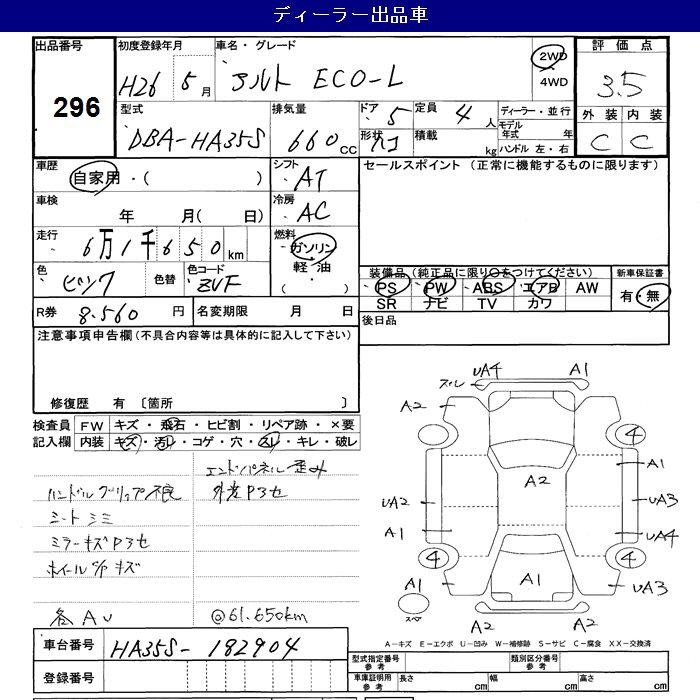 ディーラー出品車
出品番号 初度登録年月 車名・グレード 評価点
296 H26 5月 アルト ECO-L 2WD 4WD 3.5
型式 排気量 ドア 5 定員 4人 ディーラー・並行 外装 内装
DBA-HA35S 660CC 形状 積載 kg モデル年式 年 C C
ハンドル 左・右
車歴 シフト セールスポイント（正常に機能するものに限ります）
自家用・（ ） AT
車検 冷房
年 月（ 日） AC
走行 6万1千650km 燃料 ガソリン・軽油・（ ）
色 ピンク 色替 色コード ZVF
装備品（純正品に限り○をつけてください） 新車保証書
PS PW ABS エアB AW 有・無
SR ナビ TV カワ
R券 8.560円 名変期限 月 日 後日品
注意事項申告欄（不具合内容等は具体的に記入して下さい）
修復歴 有 〔箇所 〕
検査員 FW キズ・飛石・ヒビ割・リペア跡・×要
記入欄 内装 キズ・汚れ・コゲ・穴・スレ・キレ・破レ
エンドパネル歪み
ハンドルグリップ不良 外装Pヨセ
シートシミ
ミラーキズPヨセ
ホイールC/Pキズ
各AU @61.650km
車台番号 HA35S-182904
登録番号
スレ UA4 A1
A2
4
A1
A2
UA2 UA3
A1 UA4
4 4
A1 A1 UA3
スペア A2 A2
A-キズ E-エクボ U-凹み W-補修跡 S-サビ C-腐食 XX-交換済
型式指定番号 参考 類別区分番号 参考
車庫証明用 参考 長さ cm 幅 cm 高さ cm